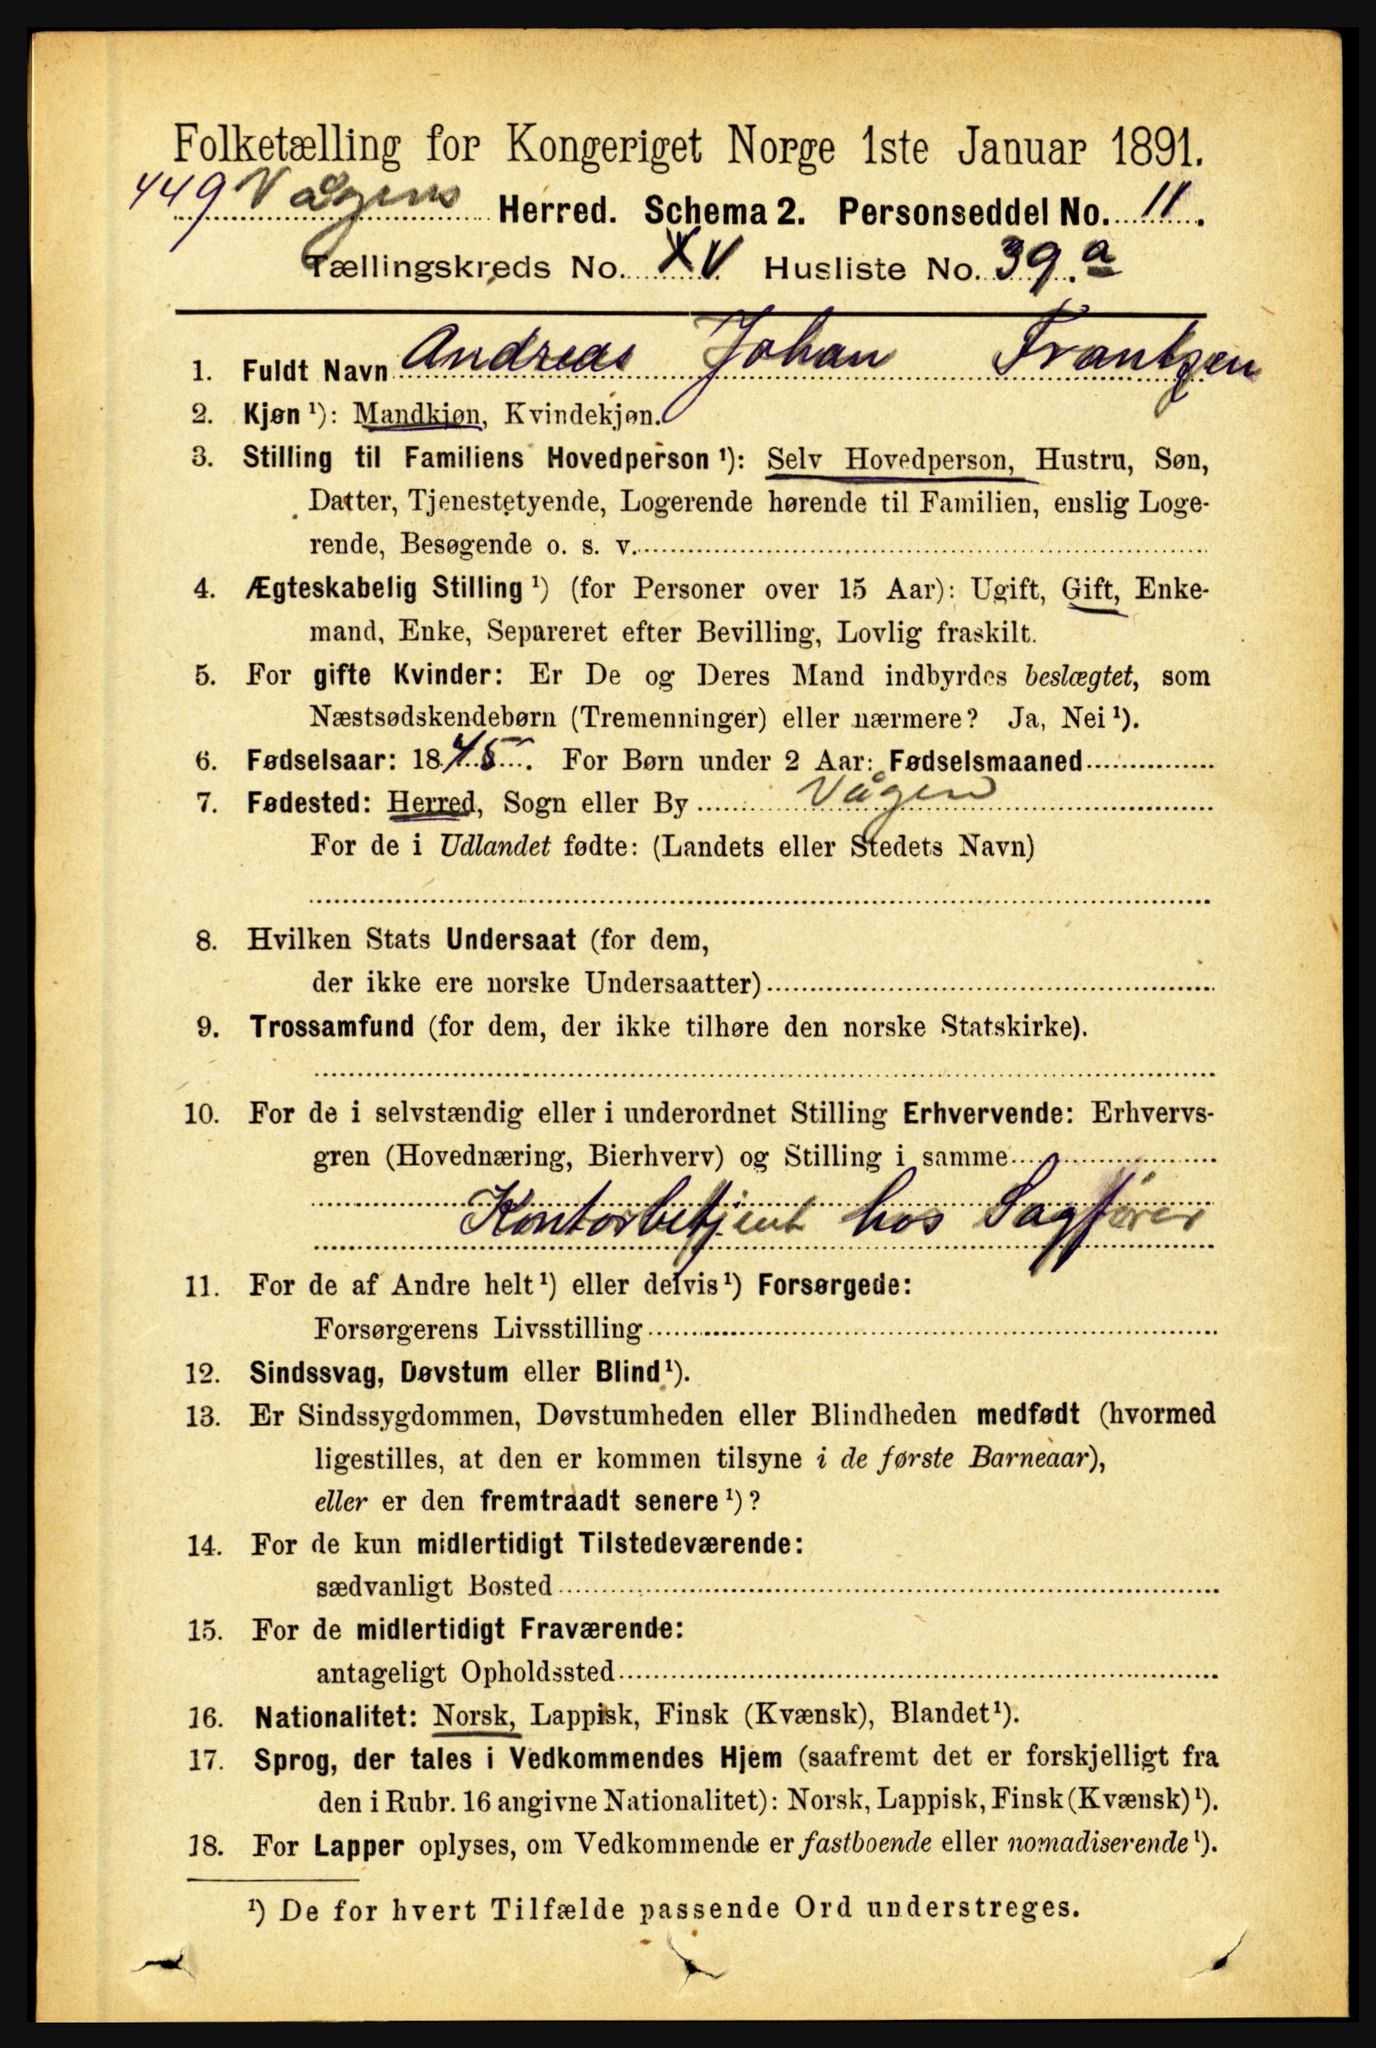 Folketælling for Kongeriget Norge 1ste Januar 1891.
449 Vågens Herred. Schema 2. Personseddel No. 11.
Tællingskreds No. XV Husliste No. 39.a
1. Fuldt Navn Andreas Johan Frantzen
2. Kjøn ¹): Mandkjøn, Kvindekjøn.
3. Stilling til Familiens Hovedperson ¹): Selv Hovedperson, Hustru, Søn,
Datter, Tjenestetyende, Logerende hørende til Familien, enslig Loge-
rende, Besøgende o. s. v.
4. Ægteskabelig Stilling ¹) (for Personer over 15 Aar): Ugift, Gift, Enke-
mand, Enke, Separeret efter Bevilling, Lovlig fraskilt.
5. For gifte Kvinder: Er De og Deres Mand indbyrdes beslægtet, som
Næstsødskendebørn (Tremenninger) eller nærmere? Ja, Nei ¹).
6. Fødselsaar: 1845. For Børn under 2 Aar: Fødselsmaaned
7. Fødested: Herred, Sogn eller By Vågen
For de i Udlandet fødte: (Landets eller Stedets Navn)
8. Hvilken Stats Undersaat (for dem,
der ikke ere norske Undersaatter)
9. Trossamfund (for dem, der ikke tilhøre den norske Statskirke).
10. For de i selvstændig eller i underordnet Stilling Erhvervende: Erhvervs-
gren (Hovednæring, Bierhverv) og Stilling i samme
Kontorbetjent hos Sagfører
11. For de af Andre helt ¹) eller delvis ¹) Forsørgede:
Forsørgerens Livsstilling
12. Sindssvag, Døvstum eller Blind ¹).
13. Er Sindssygdommen, Døvstumheden eller Blindheden medfødt (hvormed
ligestilles, at den er kommen tilsyne i de første Barneaar),
eller er den fremtraadt senere ¹)?
14. For de kun midlertidigt Tilstedeværende:
sædvanligt Bosted
15. For de midlertidigt Fraværende:
antageligt Opholdssted
16. Nationalitet: Norsk, Lappisk, Finsk (Kvænsk), Blandet ¹).
17. Sprog, der tales i Vedkommendes Hjem (saafremt det er forskjelligt fra
den i Rubr. 16 angivne Nationalitet): Norsk, Lappisk, Finsk (Kvænsk) ¹).
18. For Lapper oplyses, om Vedkommende er fastboende eller nomadiserende ¹).
¹) De for hvert Tilfælde passende Ord understreges.